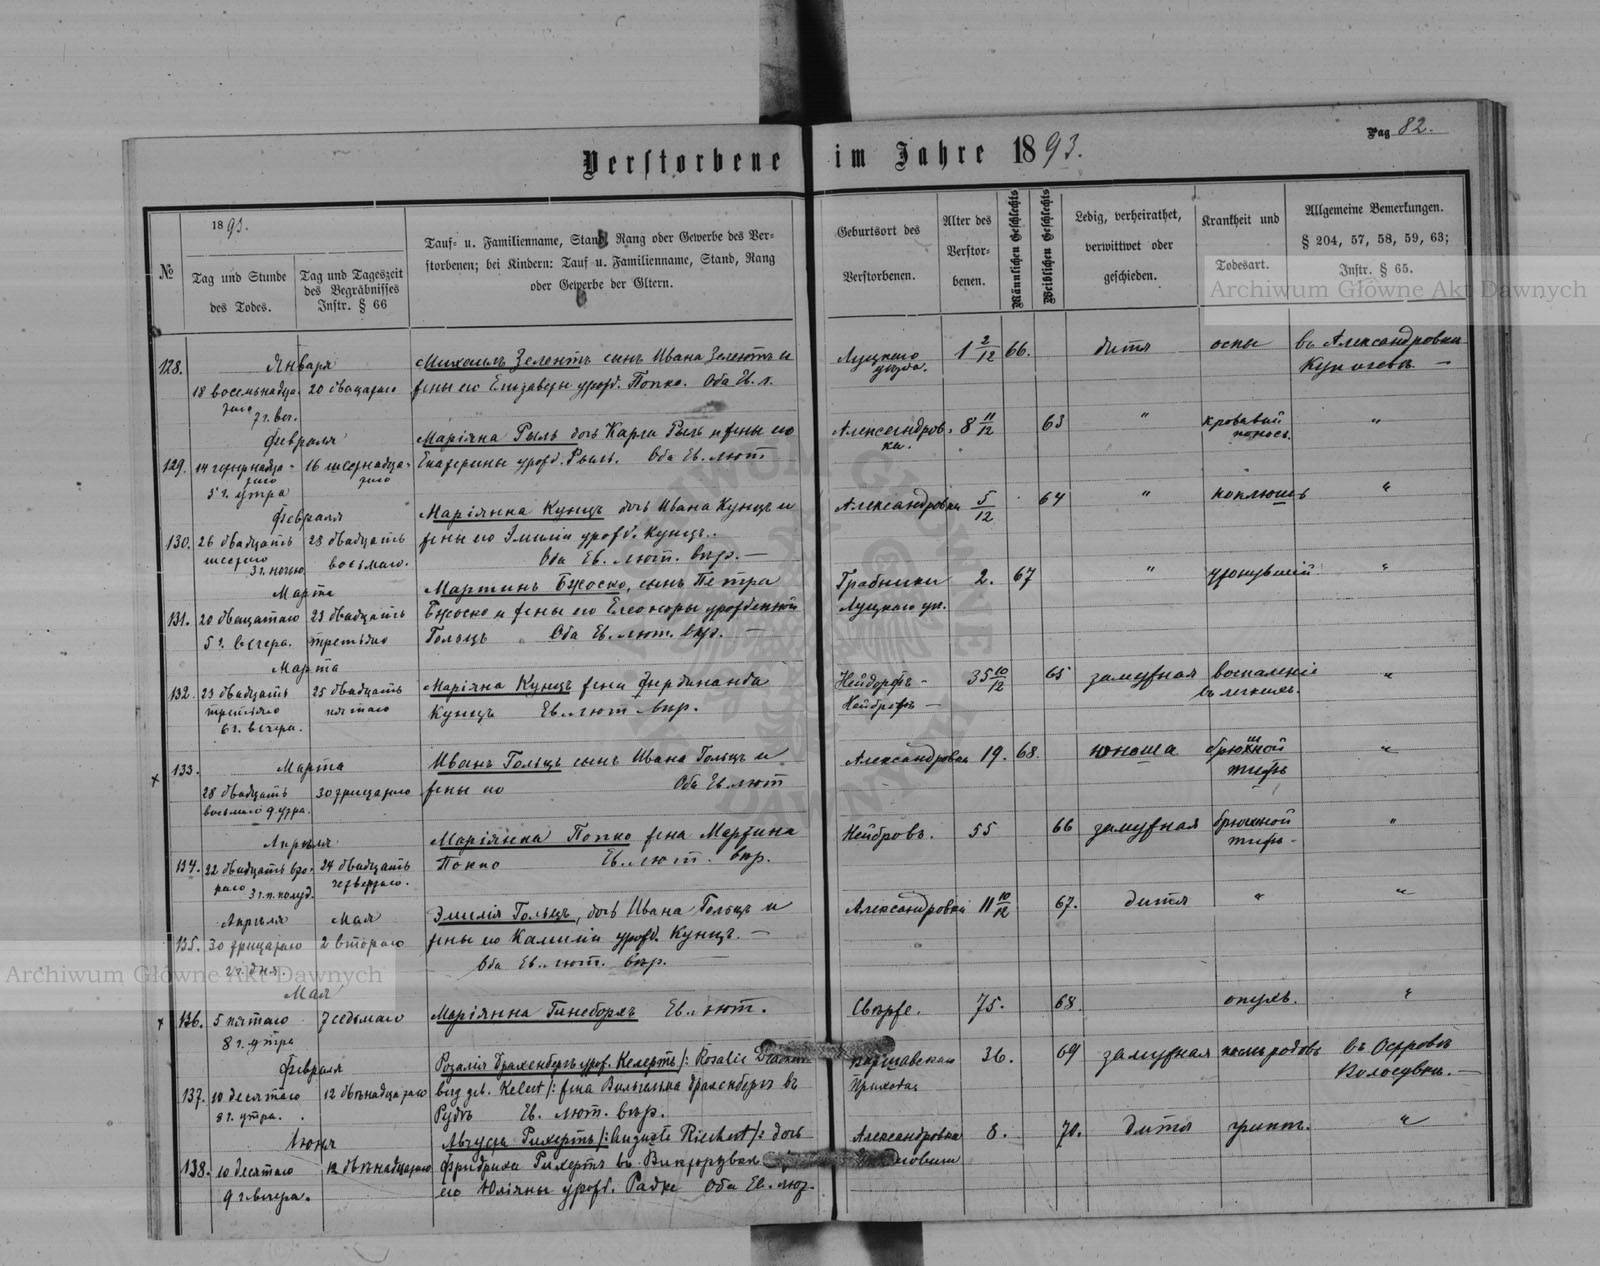 Pag 82.
Verstorbene im Jahre 1893.
№
1893.
Tag und Stunde
des Todes.
Tag und Tageszeit
des Begräbnisses
Instr. § 66
Tauf- u. Familienname, Stand, Rang oder Gewerbe des Ver-
storbenen; bei Kindern: Tauf- u. Familienname, Stand, Rang
oder Gewerbe der Eltern.
Geburtsort des
Verstorbenen.
Alter des
Verstor-
benen.
Männlichen Geschlechts
Weiblichen Geschlechts
Ledig, verheirathet,
verwittwet oder
geschieden.
Krankheit und
Todesart.
Allgemeine Bemerkungen.
§ 204, 57, 58, 59, 63;
Instr. § 65.
Archiwum Główne Akt Dawnych
128. Января Михаилъ Зелентъ сынъ Ивана Зелентъ и Луцкаго 1 2/12 66. дитя оспы въ Александровки
уѣзда.
18 восемьнадца- 20 двацатаго жены его Елизаветы урожд. Попко. Оба Ев. л.
таго
7 ч. веч.
Февраля Маріянна Рыль дочь Карла Рыль и жены его Александров- 8 11/12 63 " кровавый "
ка. поносъ.
129. 14 четырнадца- 16 шестнадца- Екатерины урожд. Рыль. Оба Ев. лют
таго таго
5 ч. утра
Февраля Маріянна Кунцъ дочь Ивана Кунцъ и Александровка 5/12 64 " коклюшъ "
130. 26 двадцать 28 двадцать жены его Эмиліи урожд. Кунцъ.
шестаго восьмаго. Оба Ев. лют. вѣр. —
3 ч. ночью
Марта Мартинъ Бжоско, сынъ Петра Грабники 2. 67 " утонувшій "
131. 20 двацатаго 23 двадцать Бжоско и жены его Елеоноры урожденной Луцкаго уѣ.
5 ч. вечера. третьяго Гольцъ Оба Ев. лют. вѣр. —
Марта
132. 23 двадцать 25 двадцать Маріяна Кунцъ жена Фердинанда Нейдорфъ- 35 10/12 65 замужная воспаленіе "
третьяго пятаго Кунцъ Ев. лют вѣр. Нейброфъ — въ легкихъ.
6 ч. вечера.
133. Марта Иванъ Гольцъ сынъ Ивана Гольцъ и Александровка 19. 68. юноша брюшной "
28 двадцать 30 трицатаго жены его Оба Ев. лют тифъ
восьмаго 9 утра.
Апрѣля Маріянна Попко жена Мартина Нейбровъ. 55 66 замужная брюшной "
134. 22 двадцать вто- 24 двадцать Попко Ев. лют. вѣр. тифъ-
раго 3 ч. п. полуд. четвертаго.
Апрѣля Мая Эмилія Гольцъ, дочь Ивана Гольцъ и Александровка 11 10/12 67. дитя " "
135. 30 трицатаго 2 втораго жены его Камиліи урожд. Кунцъ. —
2 ч. дня. Оба Ев. лют. вѣр. —
Archiwum Główne Akt Dawnych
Мая
136. 5 пятаго 7 седьмаго Маріянна Гинеборхъ Ев. лют. 75. 68. опухъ. "
8 ч. утра
Февраля Розалія Драхенбергъ урож. Келертъ /: Rosalie 36. 69 замужная послѣ родовъ въ Островѣ
137. 10 десятаго 12 двѣнадцатаго Kelert :/ жена Вильгельма Драхенбергъ въ Прихода
8 ч. утра. Ев. лют. вѣр.
Іюня Августа Рихертъ /: Auguste Riechert :/ дочь Александровка 8. 70. дитя грипп. "
138. 10 десятаго 12 двѣнадцатаго Фридриха Рихертъ въ
9 ч вечера. его Юліяны урожд. Радке Оба Ев. лют.